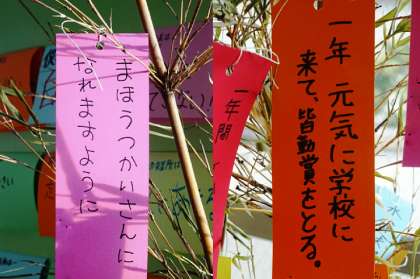 まほうつかいさんに
なれますように
一年 元気に学校に
来て、皆勤賞をとる。
一年間